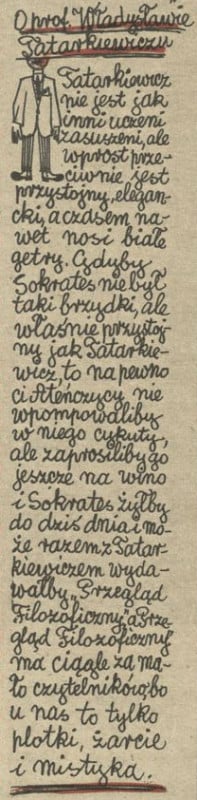 O prof. Władysławie
Tatarkiewiczu
Tatarkiewicz
nie jest jak
inni uczeni
zasuszeni, ale
wprost prze-
ciwnie jest
przystojny, elegan-
cki, a czasem na-
wet nosi białe
getry. Gdyby
Sokrates nie był
taki brzydki, ale
właśnie przystoj-
ny jak Tatarkie-
wicz, to na pewno
ci Ateńczycy nie
wpompowaliby
w niego cykuty,
ale zaprosiliby go
jeszcze na wino
i Sokrates żyłby
do dziś dnia i mo-
że razem z Tatar-
kiewiczem wyda-
wałby „Przegląd
Filozoficzny”, a „Prze-
gląd Filozoficzny”
ma ciągle za ma-
ło czytelników, bo
u nas to tylko
plotki, żarcie
i mistyka.